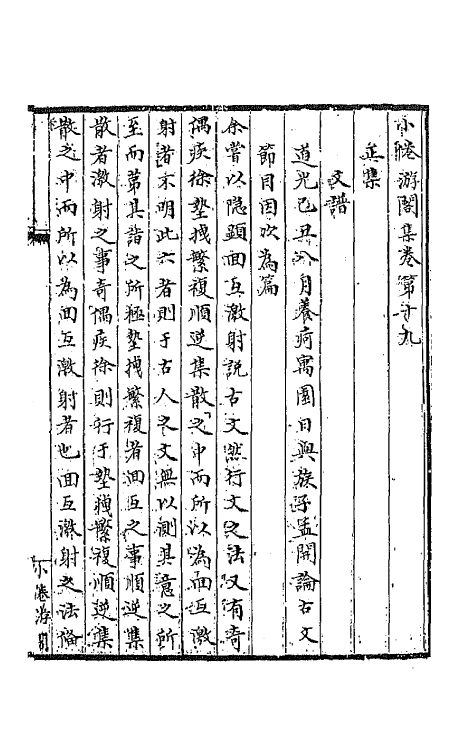 小倦游閣集卷第十九
正集
文譜
道光己丑八月養疴寓園日與族子孟開論古文
節目因次為篇
余嘗以隱顯面互激射說古文然行文之法又有奇
偶疾徐墊拽繁複順逆集散之中而所以為面互激
射者不明此六者則于古人之文無以測其意之所
至而第其詣之所極墊拽繁複者面互之事順逆集
散者激射之事奇偶疾徐則行于墊拽繁複順逆集
散之中而所以為面互激射者也面互激射之法備
小倦游閣